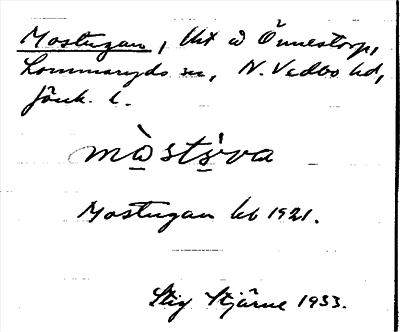 Mostugan, tht å Önnestorp,
Lommaryds sn, N. Vedbo hd,
Jönk. l.
mòstùva
Mostugan kb 1921.
Stig Stjärne 1933.